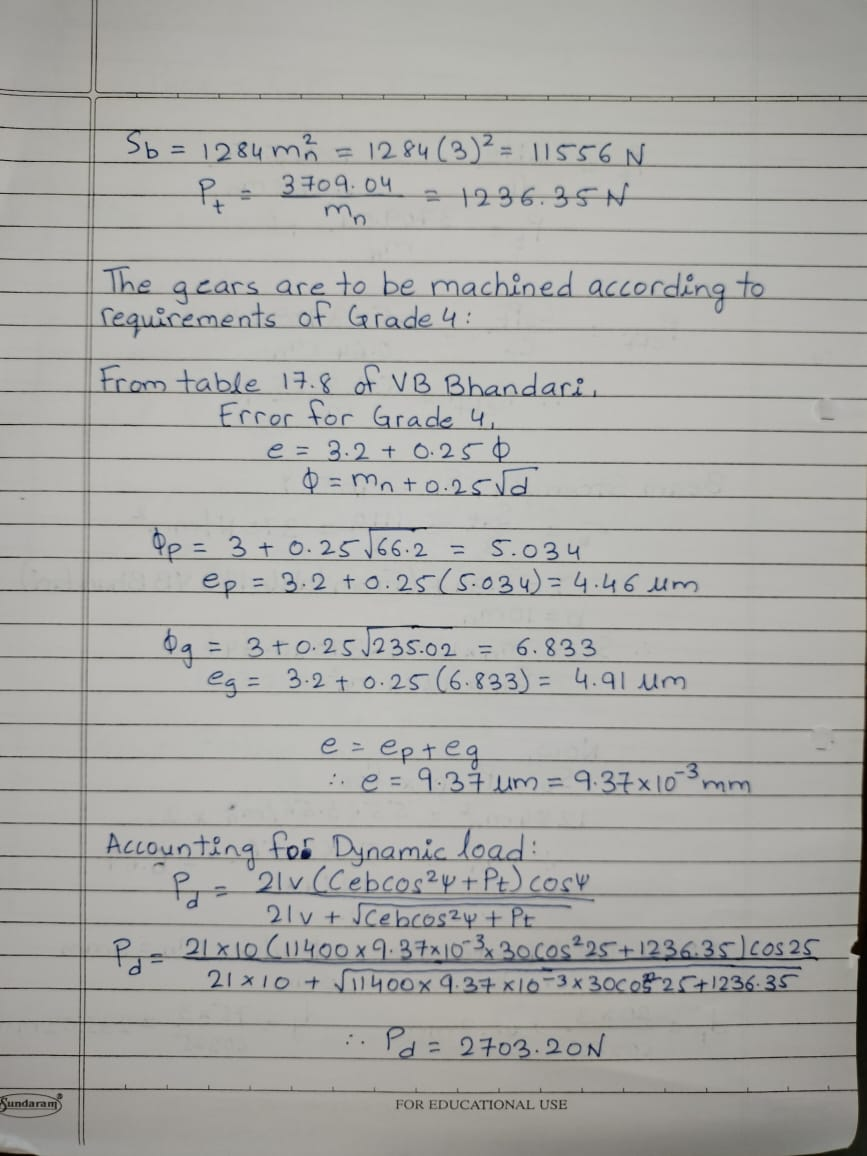 Sb = 1284 mn² = 1284 (3)² = 11556 N
Pt = 3709.04 / mn = 1236.35 N
The gears are to be machined according to
requirements of Grade 4:
From table 17.8 of VB Bhandari,
Error for Grade 4,
e = 3.2 + 0.25 ϕ
ϕ = mn + 0.25 √d
ϕp = 3 + 0.25 √66.2 = 5.034
ep = 3.2 + 0.25 (5.034) = 4.46 μm
ϕg = 3 + 0.25 √235.02 = 6.833
eg = 3.2 + 0.25 (6.833) = 4.91 μm
e = ep + eg
∴ e = 9.37 μm = 9.37 × 10⁻³ mm
Accounting for Dynamic load:
Pd = 21v (Cebcos²ψ + Pt) cosψ / 21v + √Cebcos²ψ + Pt
Pd = 21 × 10 (11400 × 9.37 × 10⁻³ × 30 cos²25 + 1236.35) cos 25 / 21 × 10 + √11400 × 9.37 × 10⁻³ × 30 cos²25 + 1236.35
∴ Pd = 2703.20 N
Sundaram®
FOR EDUCATIONAL USE